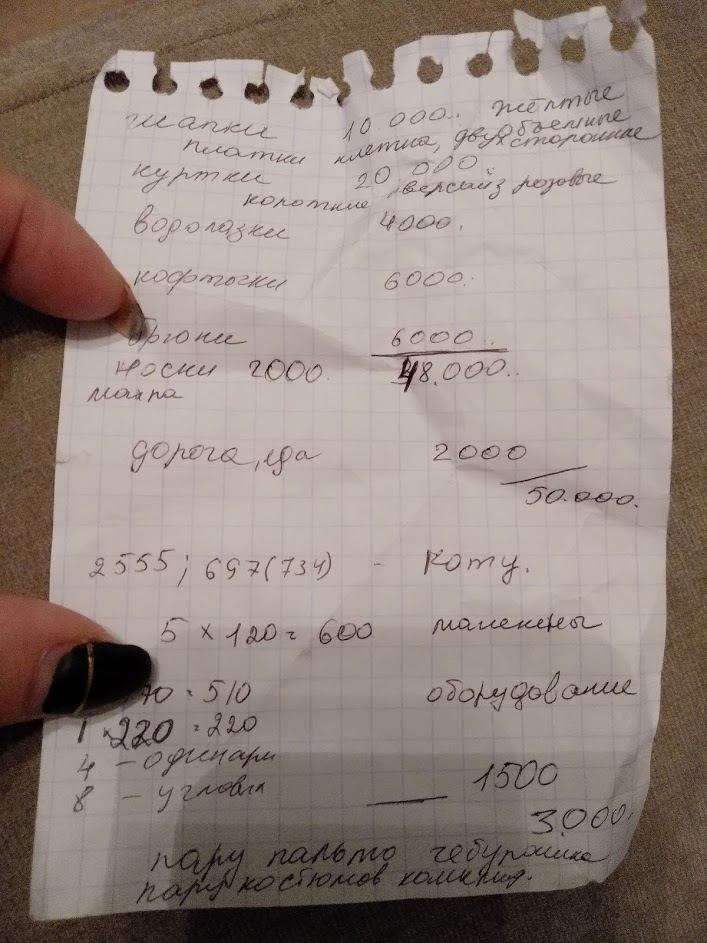 шапки 10.000. жёлтые
платки клетка, двухсторонние
объемные
куртки 20 000.
короткие, версайз розовые
водолазки 4000.
кофточки 6000.
брюки 6000.
носки 2000. 48.000.
махра
дорога, еда 2000
50.000.
2555; 697(734) - коту.
5 × 120 = 600 манекены
70 = 510 оборудование
1 × 220 = 220
4 - одинари
8 - угловы
1500
3.000.
пару пальто чебурашка
пару костюмов